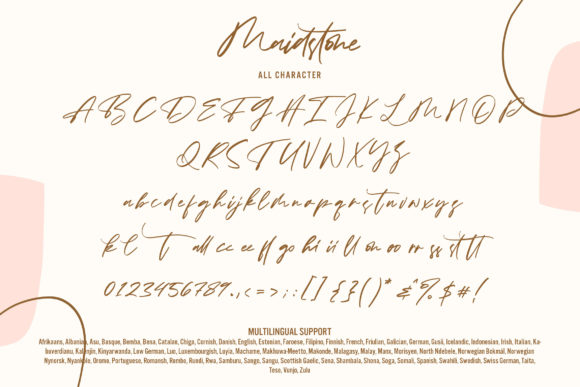 Maidstone
ALL CHARACTER
A B C D E F G H I J K L M N O P
Q R S T U V W X Y Z
a b c d e f g h i j k l m n o p q r s t u v w x y z
k t T all cc ee ff go hi ii ll on oo or ss st tt
0 1 2 3 4 5 6 7 8 9 . , < = > ; : [ ] { } ( ) * & " % $ # !
MULTILINGUAL SUPPORT
Afrikaans, Albanian, Asu, Basque, Bemba, Bena, Catalan, Chiga, Cornish, Danish, English, Estonian, Faroese, Filipino, Finnish, French, Friulian, Galician, German, Gusii, Icelandic, Indonesian, Irish, Italian, Ka-
buverdianu, Kalenjin, Kinyarwanda, Low German, Luo, Luxembourgish, Luyia, Machame, Makhuwa-Meetto, Makonde, Malagasy, Malay, Manx, Morisyen, North Ndebele, Norwegian Bokmål, Norwegian
Nynorsk, Nyankole, Oromo, Portuguese, Romansh, Rombo, Rundi, Rwa, Samburu, Sango, Sangu, Scottish Gaelic, Sena, Shambala, Shona, Soga, Somali, Spanish, Swahili, Swedish, Swiss German, Taita,
Teso, Vunjo, Zulu